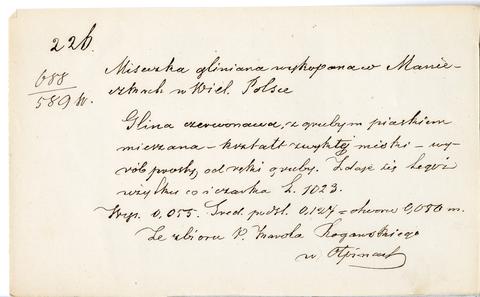 226.
688
589 w.
Miseczka gliniana wykopana w Manie-
czkach w Wiel. Polsce
Glina czerwonawa, z grubym piaskiem
mieszana – kształt zwykłej miski – wy-
rób prosty, od ręki gruby. Zdaje się tegoż
użytku co i czarka L. 1023.
Wys. 0,055. Śred. podst. 0,127 = otworu 0,050 m.
Ze zbioru P. Karola Rogawskiego
w Ołpinach